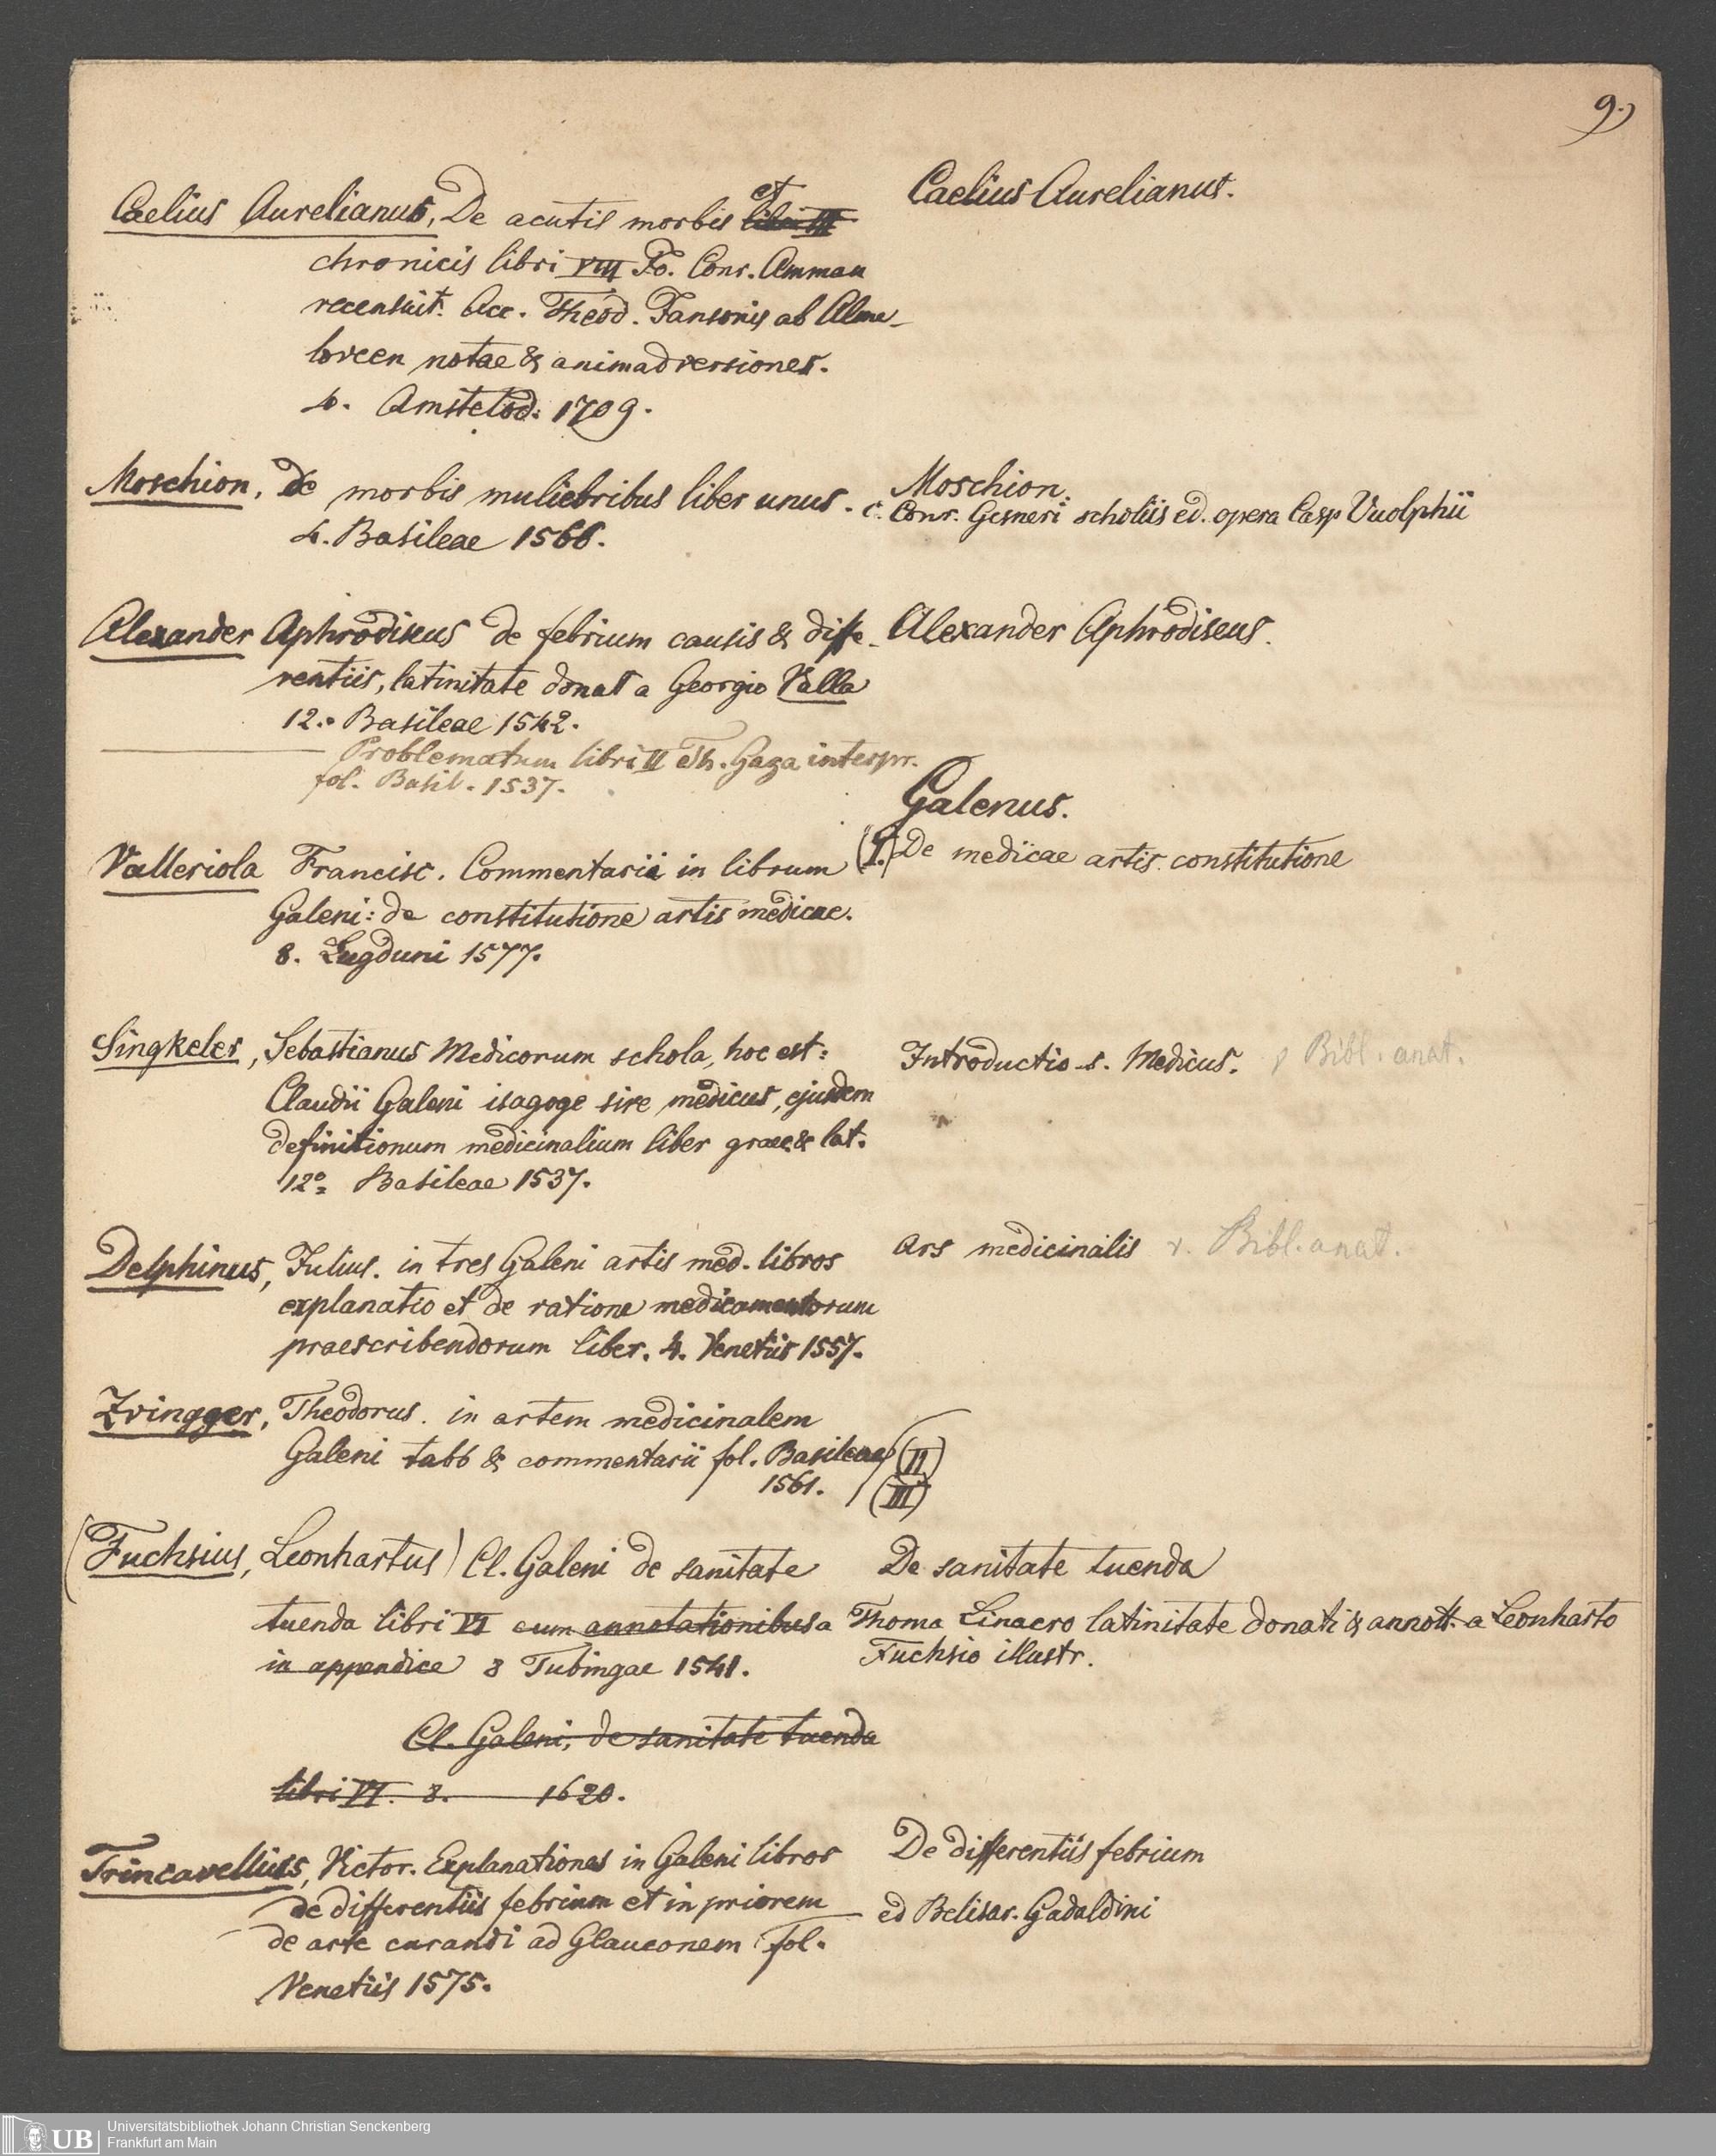 9.)
Caelius Aurelianus.
Caelius Aurelianus, De acutis morbis libri III et
chronicis libri VIII Jo. Conr. Amman
recensuit. Acc. Theod. Jansonis ab Alme-
loveen notae & animadversiones.
4. Amstelod: 1709.
Moschion.
Moschion, de morbis muliebribus liber unus. c. Conr. Gesneri scholiis ed. opera Casp Vuolphii
4. Basileae 1566.
Alexander Aphrodiseus de febrium causis & diffe-
Alexander Aphrodiseus.
rentiis, latinitate donat a Georgio Valla
12.o Basileae 1542.
— Problematum libri II Th. Gaza interpr.
fol. Basil. 1537.
Galenus.
(I.) De medicae artis constitutione
Valleriola Francisc. Commentarii in librum
Galeni: de constitutione artis medicae.
8. Lugduni 1577.
Singkeler, Sebastianus Medicorum schola, hoc est:
Introductio s. Medicus. v Bibl. anat.
Claudii Galeni isagoge sive medicus, ejusdem
definitionum medicinalium liber graec & lat.
12o Basileae 1537.
Ars medicinalis v. Bibl. anat.
Delphinus, Julius. in tres Galeni artis med. libros
explanatio et de ratione medicamentorum
praescribendorum liber. 4. Venetiis 1557.
Zvingger, Theodorus. in artem medicinalem
Galeni tabb & commentarii fol. Basileae (II)
1561. (III)
(Fuchsius, Leonhartus) Cl. Galeni de sanitate
De sanitate tuenda
tuenda libri VI cum annotationibus a Thoma Linacro latinitate donati & annott. a Leonharto
Fuchsio illustr.
in appendice 8 Tubingae 1541.
Cl. Galeni, de sanitate tuenda
libri VI. 8. 1620.
Trincavellius, Victor. Explanationes in Galeni libros
De differentiis febrium
de differentiis febrium et in priorem
ed Belisar. Gadaldini
de arte curandi ad Glauconem fol.
Venetiis 1575.
UB
Universitätsbibliothek Johann Christian Senckenberg
Frankfurt am Main